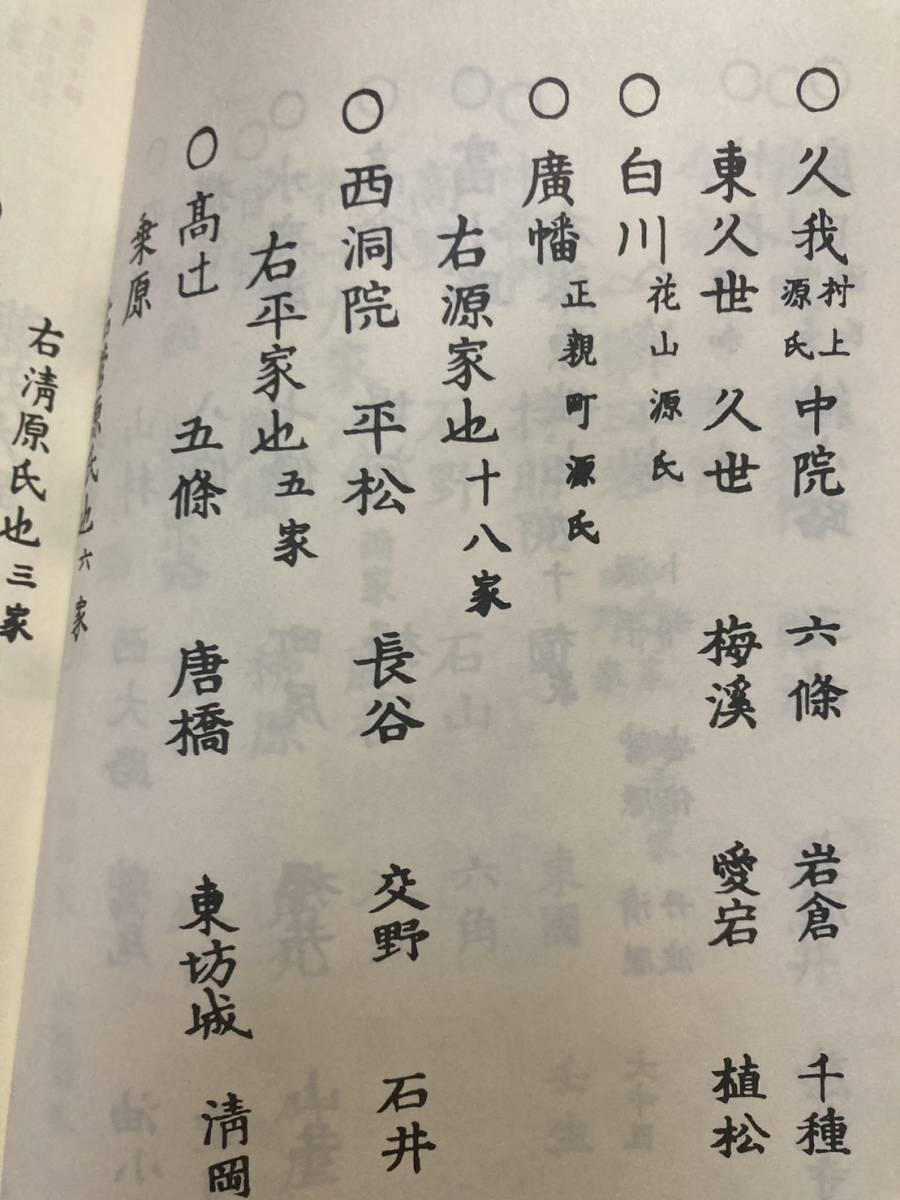 〇久我村上源氏 中院 六條 岩倉 千種
東久世 久世 梅溪 愛宕 植松
〇白川花山源氏
〇廣幡正親町源氏
右源家也十八家
〇西洞院 平松 長谷 交野 石井
右平家也五家
〇髙辻 五條 唐橋 東坊城 清岡
桒原
原氏也六家
右清原氏也三家